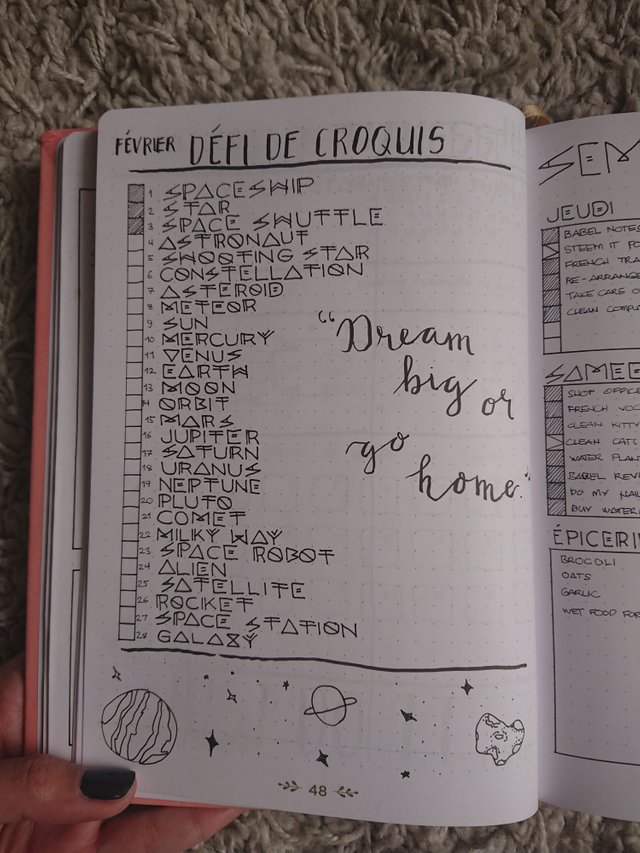 FÉVRIER DÉFI DE CROQUIS
1 SPACESHIP
2 STAR
3 SPACE SHUTTLE
4 ASTRONAUT
5 SHOOTING STAR
6 CONSTELLATION
7 ASTEROID
8 METEOR
9 SUN
10 MERCURY
11 VENUS
12 EARTH
13 MOON
14 ORBIT
15 MARS
16 JUPITER
17 SATURN
18 URANUS
19 NEPTUNE
20 PLUTO
21 COMET
22 MILKY WAY
23 SPACE ROBOT
24 ALIEN
25 SATELLITE
26 ROCKET
27 SPACE STATION
28 GALAXY
"Dream
big or
go
home."
48
SEM
JEUDI
BABEL NOTES
STEEM IT FO
FRENCH TRA
RE-ARRANGE
TAKE CARE O
CLEAN COMPU
SAMED
SHOP OFFICE
FRENCH VOC
CLEAN KITTY
CLEAN CATS
WATER PLAN
BABEL REV
DO MY NAI
BUY WATER
ÉPICERI
BROCOLI
OATS
GARLIC
WET FOOD FOR